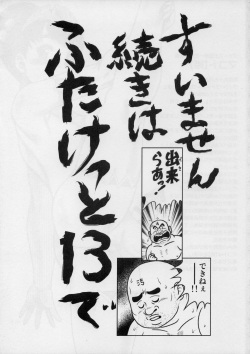 すいません
続きは
ふたけっと13で
出来
らあっ!
できねぇ
ーー!!